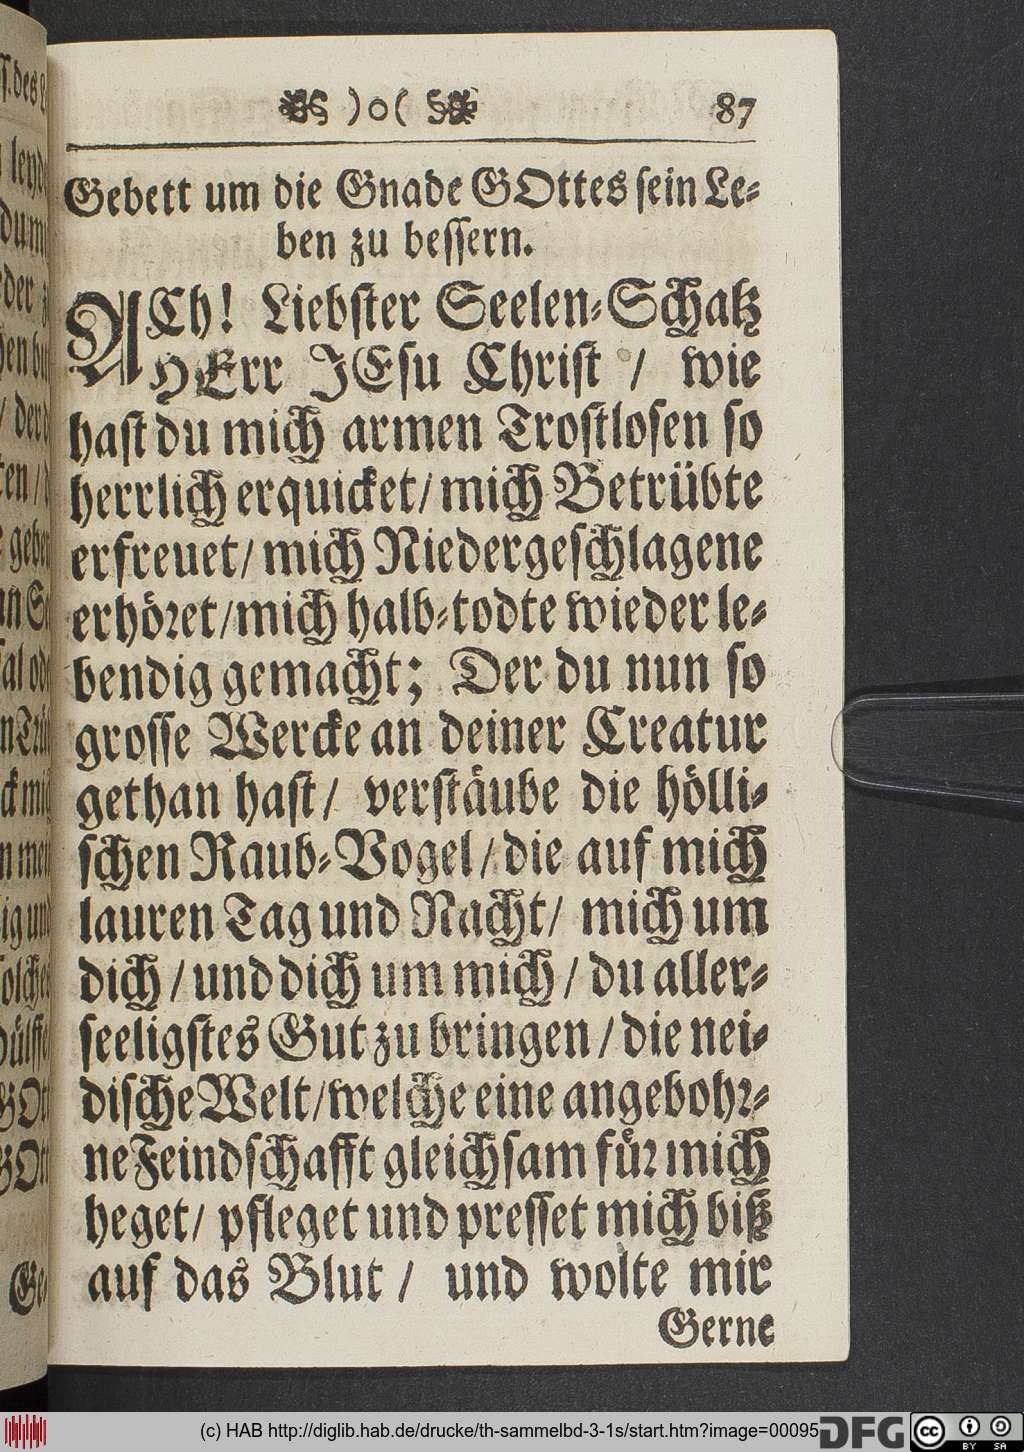 )o( 87
Gebett um die Gnade GOttes sein Le-
ben zu bessern.
ACh! Liebster Seelen-Schatz
HErr JEsu Christ / wie
hast du mich armen Trostlosen so
herrlich erquicket / mich Betrübte
erfreuet / mich Niedergeschlagene
erhöret / mich halb-todte wieder le-
bendig gemacht; Der du nun so
grosse Wercke an deiner Creatur
gethan hast / verstäube die hölli-
schen Raub-Vogel / die auf mich
lauren Tag und Nacht / mich um
dich / und dich um mich / du aller-
seeligstes Gut zu bringen / die nei-
dische Welt / welche eine angebohr-
ne Feindschafft gleichsam für mich
heget / pfleget und presset mich biß
auf das Blut / und wolte mir
Gerne
(c) HAB http://diglib.hab.de/drucke/th-sammelbd-3-1s/start.htm?image=00095
DFG
cc
BY SA